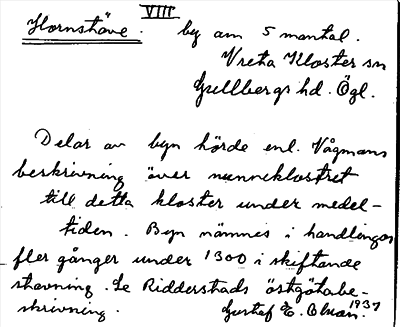 VIII
Hornstäve. by om 5 mantal.
Vreta Kloster sn
Gullbergs hd. Ögl.
Delar av byn hörde enl. Vågmans
beskrivning över nunneklostret
till detta kloster under medel-
tiden. Byn nämnes i handlingar
fler gånger under 1300 i skiftande
stavning. Se Ridderstads östgötabe-
skrivning. Gustaf E. Olsson. 1937